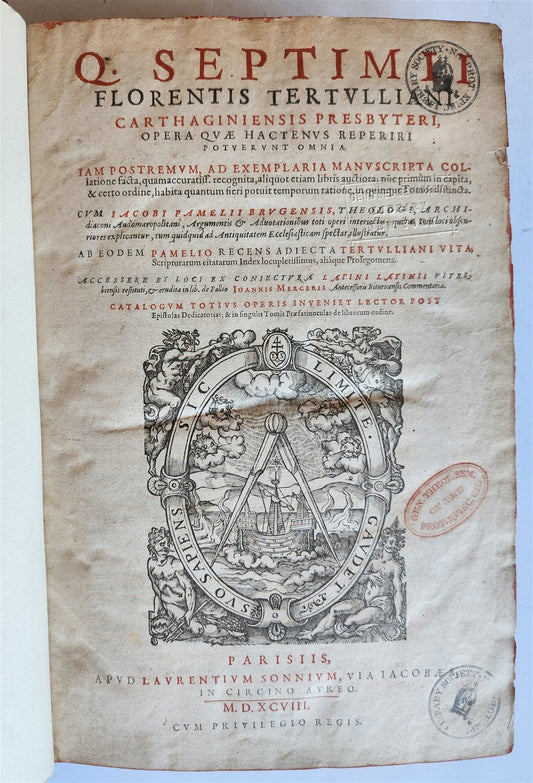 Q. SEPTIMII
FLORENTIS TERTVLLIANI
CARTHAGINIENSIS PRESBYTERI,
OPERA QVÆ HACTENVS REPERIRI
POTVERVNT OMNIA.
IAM POSTREMVM, AD EXEMPLARIA MANVSCRIPTA COL-
latione facta, quam accuratiss. recognita, aliquot etiam libris auctiora, nūc primum in capita,
& certo ordine, habita quantum fieri potuit temporum ratione, in quinque Tomos distincta.
CVM IACOBI PAMELII BRVGENSIS, THEOLOGI, ARCHI-
diaconi Audomaropolitani, Argumentis & Adnotationibus toti operi interiectis, quibus Tertul. loci obscu-
riores explicantur, tum quidquid ad Antiquitatem Ecclesiasticam spectat, illustratur.
AB EODEM PAMELIO RECENS ADIECTA TERTVLLIANI VITA,
Scripturarum citatarum Index locupletissimus, aliáque Prolegomena.
ACCESSERE ET LOCI EX CONIECTVRA LATINI LATINII VITER-
biensis restituti, & erudita in lib. de Pallio IOANNIS MERCERII Antecessoris Bituricensis Commentaria.
CATALOGVM TOTIVS OPERIS INVENIET LECTOR POST
Epistolas Dedicatorias, & in singulis Tomis Præfatiunculas de librorum ordine.
SVO SAPIENS SIC LIMITE GAVDET
GEN. THEOL. SEM.
OF THE
PARISIIS,
APVD LAVRENTIVM SONNIVM, VIA IACOBÆA
IN CIRCINO AVREO.
M. D. XCVIII.
CVM PRIVILEGIO REGIS.
LIBRARY SOCIETY